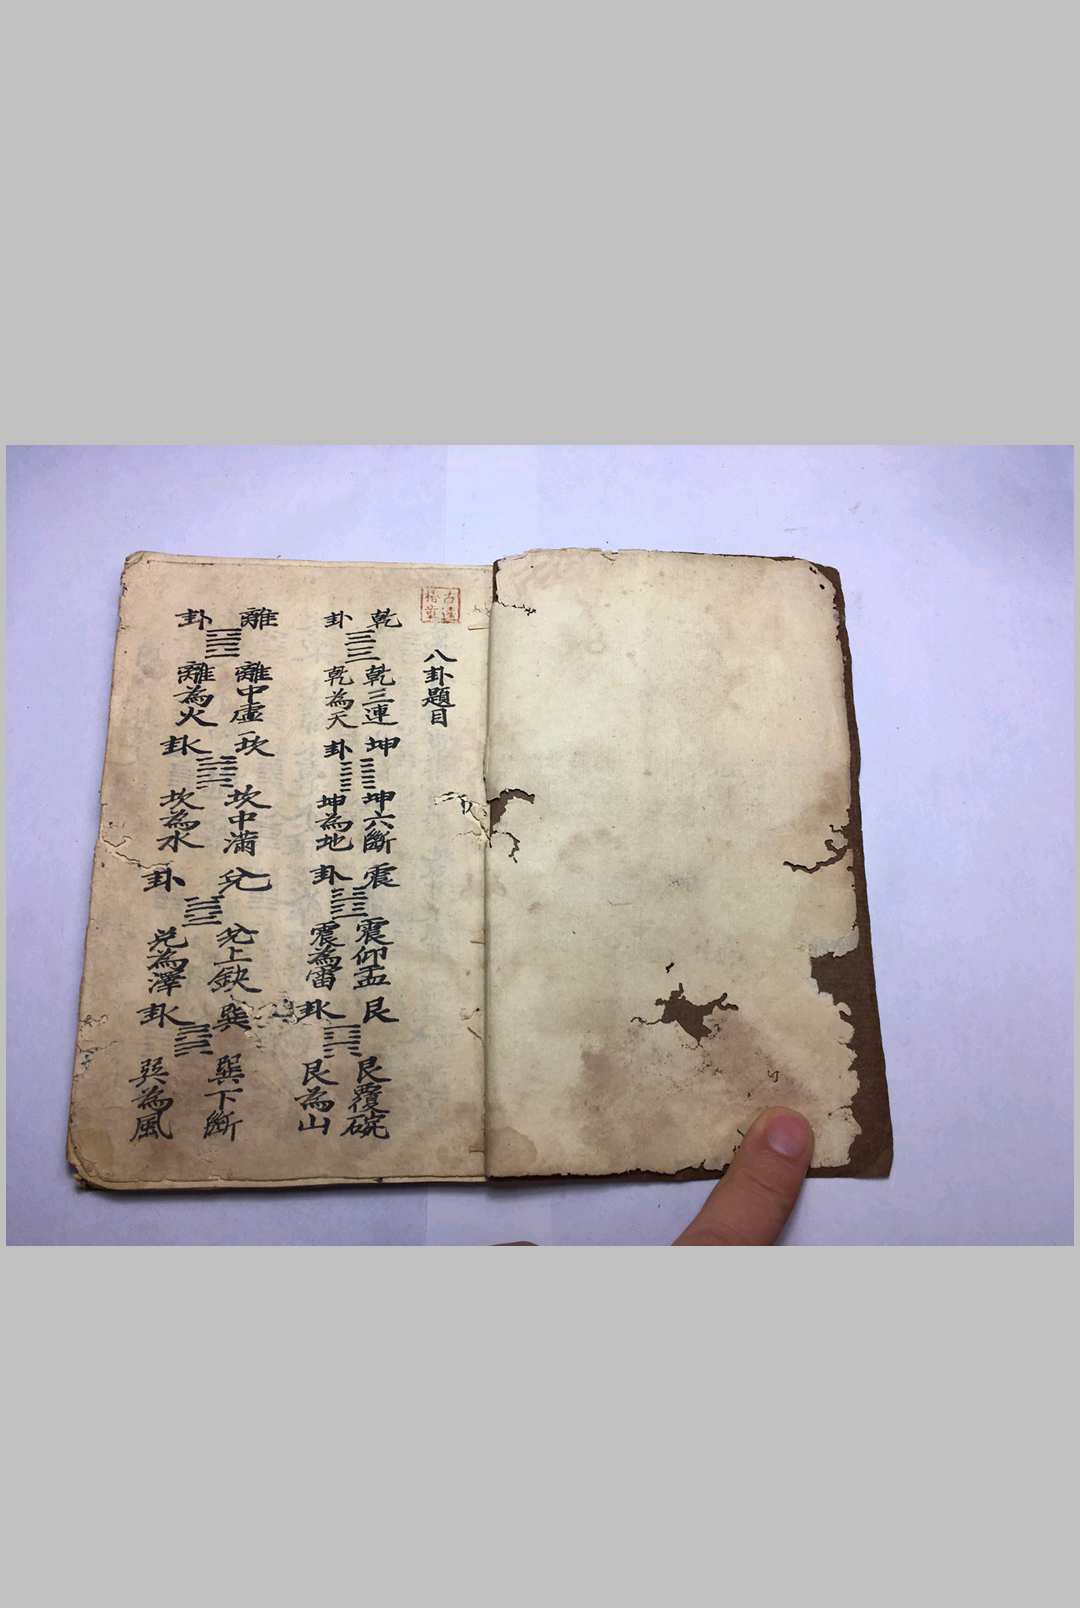 八卦題目
乾 乾三連 坤 坤六斷 震 震仰盂 艮 艮覆碗
卦 乾為天 卦 坤為地 卦 震為雷 卦 艮為山
離 離中虛 坎 坎中滿 兌 兌上缺 巽 巽下斷
卦 離為火 卦 坎為水 卦 兌為澤 卦 巽為風